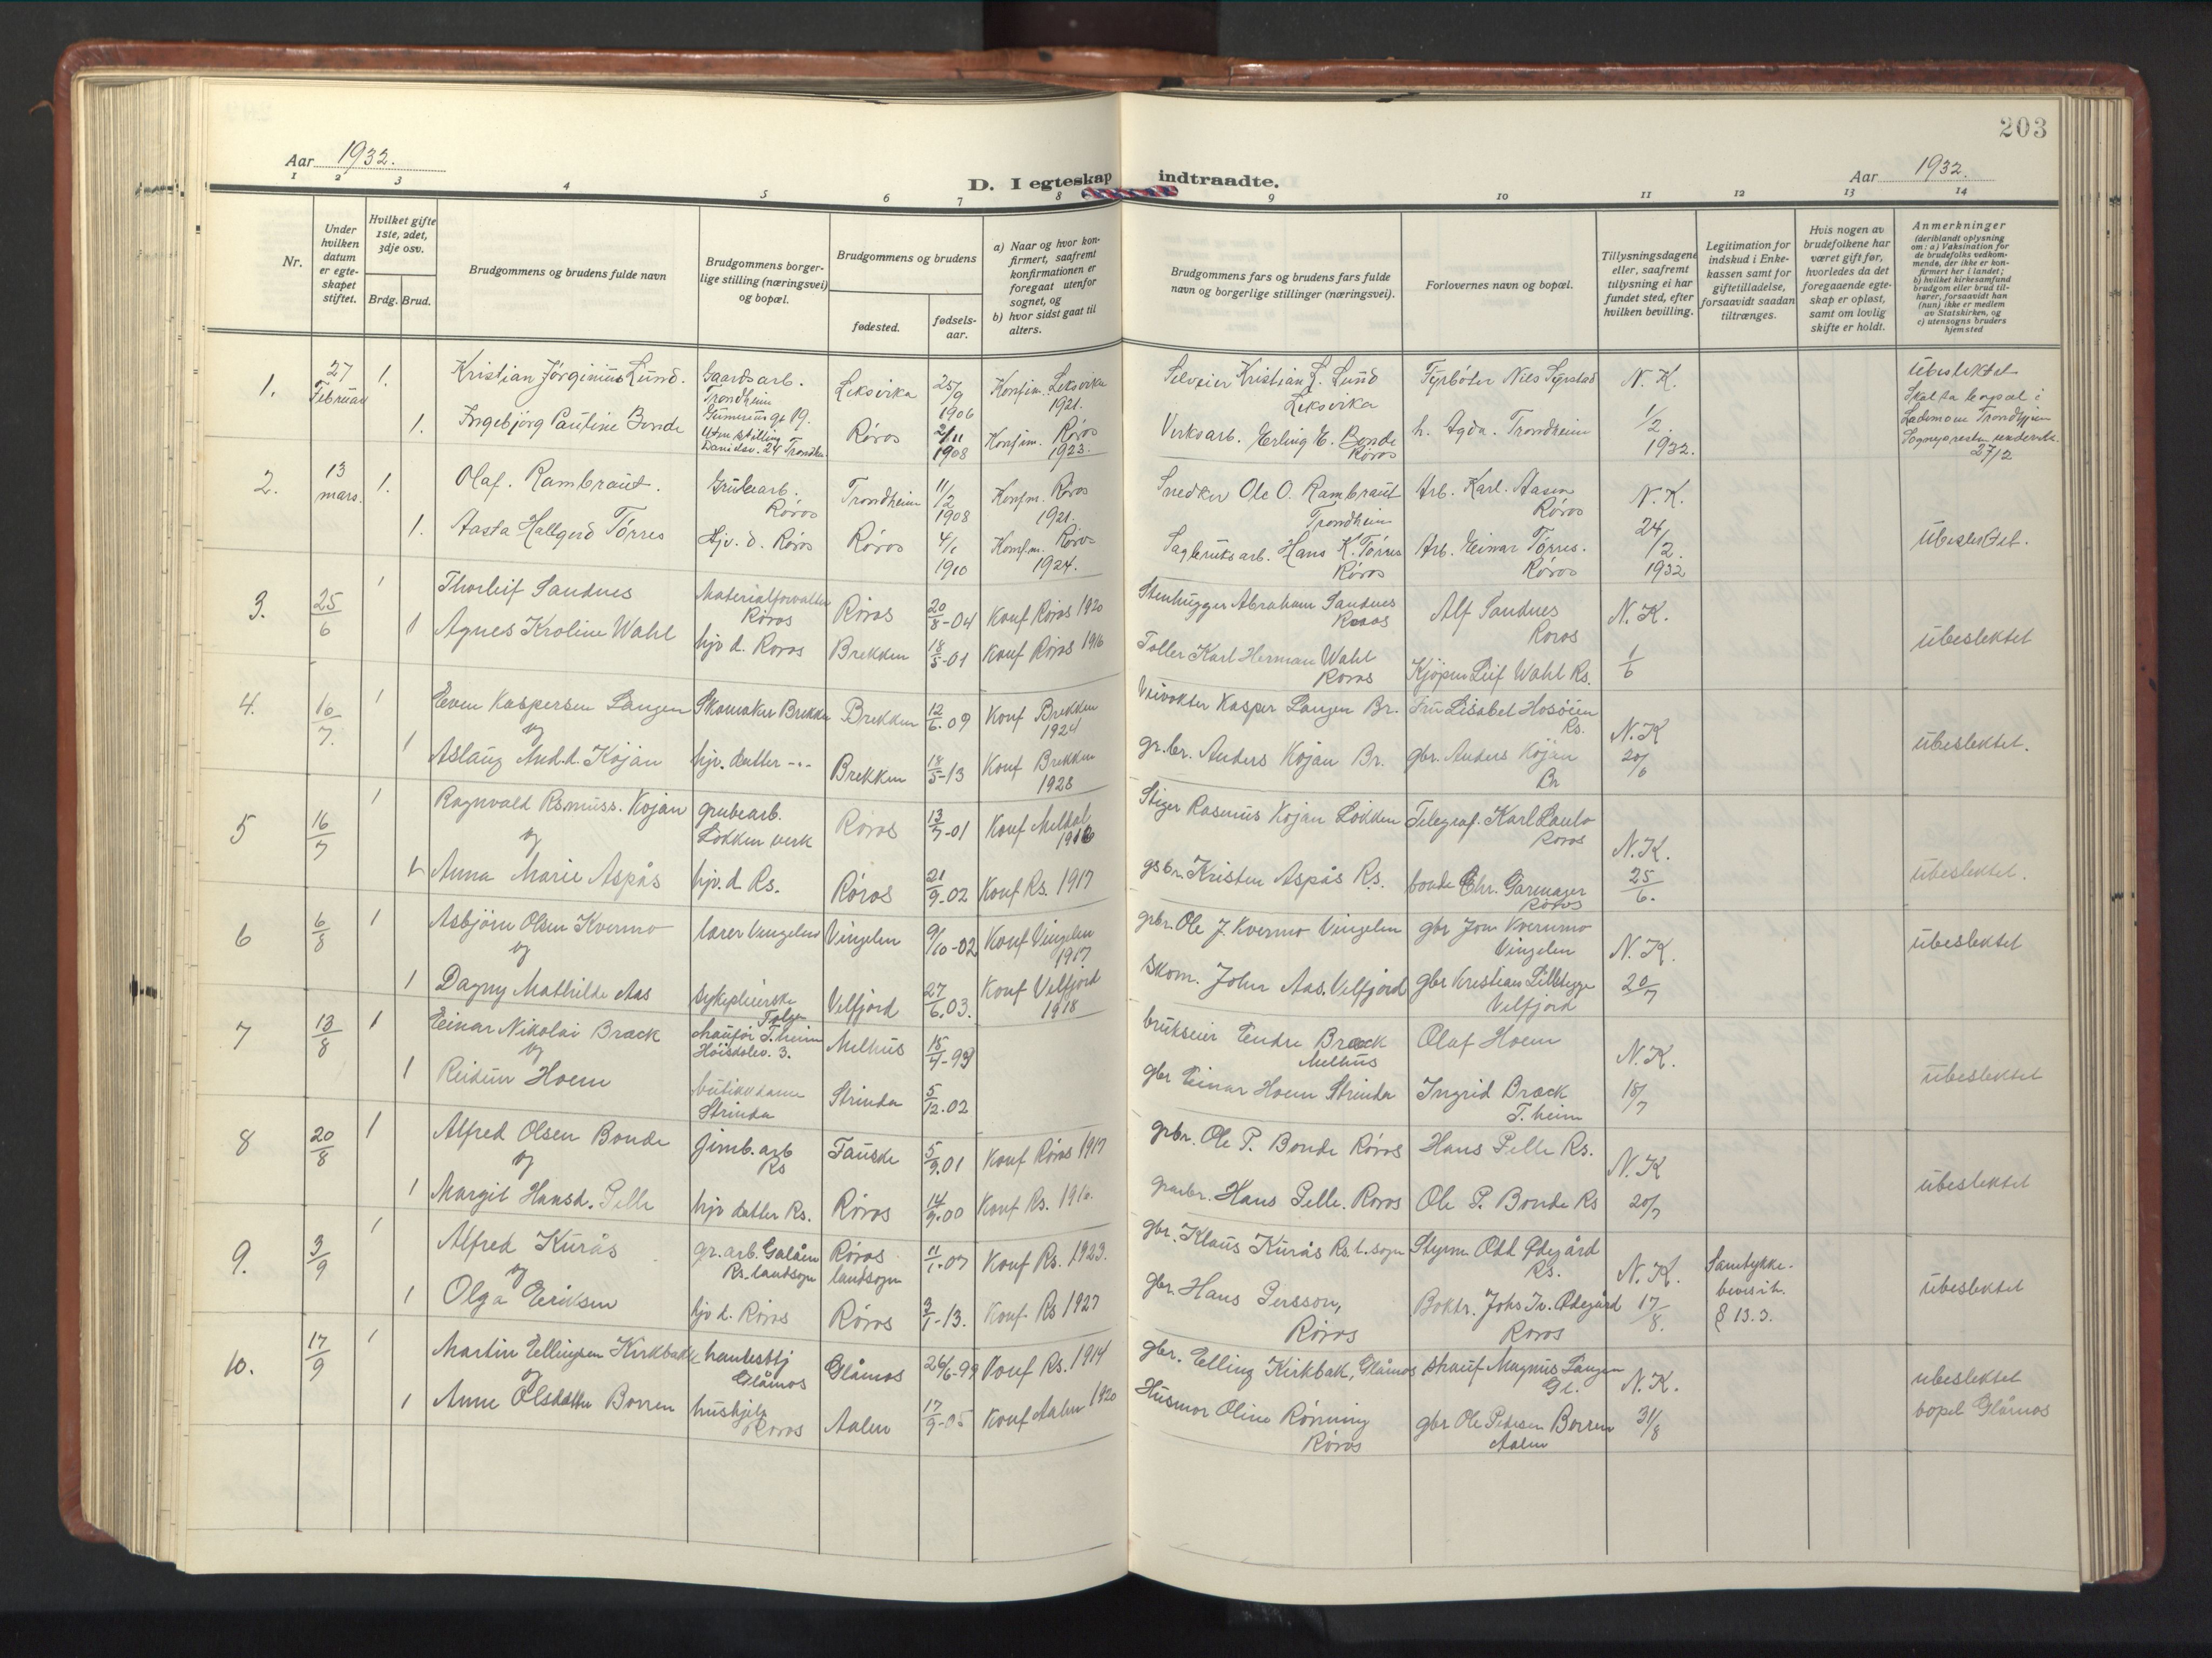 203
Aar 1932.
D. I egteskap indtraadte.
Aar 1932.
1 2 3 4 5 6 7 8 9 10 11 12 13 14
Nr.
Under hvilken datum er egteskapet stiftet.
Hvilket gifte 1ste, 2det, 3dje osv.
Brdg. Brud.
Brudgommens og brudens fulde navn
Brudgommens borgerlige stilling (næringsvei) og bopæl.
Brudgommens og brudens
fødested.
fødselsaar.
a) Naar og hvor konfirmert, saafremt konfirmationen er foregaat utenfor sognet, og
b) hvor sidst gaat til alters.
Brudgommens fars og brudens fars fulde navn og borgerlige stillinger (næringsvei).
Forlovernes navn og bopæl.
Tillysningsdagene eller, saafremt tillysning ei har fundet sted, efter hvilken bevilling.
Legitimation for indskud i Enkekassen samt for giftetilladelse, forsaavidt saadan tiltrænges.
Hvis nogen av brudefolkene har været gift før, hvorledes da det foregaaende egteskap er opløst, samt om lovlig skifte er holdt.
Anmerkninger
(deriblandt oplysning om: a) Vaksination for de brudefolks vedkommende, der ikke er konfirmert her i landet;
b) hvilket kirkesamfund brudgom eller brud tilhører, forsaavidt han (hun) ikke er medlem av Statskirken, og
c) utensogns bruders hjemsted
1. 27 Februar 1. Kristian Jørginius Lund. Gaardsarb. Trondheim Gunnerus gt 19. Leksvika 25/9 1906 Konfirm. Leksvika 1921. Selveier Kristian L. Lund Leksvika Fyrbøter Nils Syrstad N. K. Ubeslektet
1. Ingebjørg Pauline Bonde Uten stilling Danielsv. 24 Trondhm. Røros 2/11 1908 Konfirm. Røros 1923. Verksarb. Erling E. Bonde Røros h. Agda. Trondheim 1/2. 1932. Skal ta bopæl i Lademoen Trondhjem Sogneprest underr. 27/2
2. 13 mars. 1. Olaf. Rambraut. Grubearb. Røros Trondheim 11/2 1908 Konfm. Røros 1921. Snedker Ole O. Rambraut Trondheim Arb. Karl. Aasen Røros N. K.
1. Aasta Hallgerd Tørres Hjv. d. Røros Røros 4/1 1910 Konfm. Røros 1924. Sagbruksarb. Hans K. Tørres Røros Arb. Einar Tørres. Røros 24/2. 1932 Ubeslektet.
3. 25/6 1 Thorleif Sandnes Materialforvalter Røros Røros 20/8-04 Konf Røros 1920 Stenhugger Abraham Sandnes Røros Alf Sandnes Røros N. K.
1 Agnes Kroline Wahl hjv d. Røros Brekken 18/5-01 Konf Røros 1916 Toller Karl Herman Wahl Røros Kjøpm Leif Wahl Rs. 1/6 ubeslektet
4. 16/7. 1 Even Kaspersen Langen Skomaker Brekken Brekken 12/6.09 Konf Brekken 1924 Veivokter Kasper Langen Br. Fru Lisabet Hosøien Rs. N. K
og
1 Aslaug And.d. Kojan hjv. datter -"- Brekken 18/5-13 Konf Brekken 1928 gr.br. Anders Kojan Br. gbr. Anders Kojan Br 20/6 ubeslektet.
5 16/7 1 Ragnvald Rsmuss. Kojan grubearb. Løkken verk Røros 13/7-01 Konf Meldal 1916 Stiger Rasmus Kojan Løkken Telegraf. Karl Paulo Røros N. K.
og
1 Anna Marie Aspås hjv. d Rs. Røros 21/9.02 Konf Rs. 1917 gsbr. Kristen Aspås Rs. bonde Chr. Garmager Røros 25/6. ubeslektet.
6 6/8 1 Asbjørn Olsen Kvermo lærer Vingelen Vingelen 9/10-02 Konf Vingelen 1917 grbr. Ole J. Kvermo Vingelen gbr Jon Kvermo Vingelen N. K. ubeslektet
og
1 Dagny Mathilde Aas sykepleierske Tolga Velfjord 27/6.03. Konf Velfjord 1918 Skom. John Aas. Velfjord gbr Kristian Lillebygge Velfjord 20/7
7 13/8 1 Einar Nikolai Brack chaufør T.heim Høisdølev. 3. Melhus 15/4-99 brukseier Endre Brack Melhus Olaf Hoem N. K.
og
1 Reidun Hoem butikkdame Strinda Strinda 5/12.02 gbr Einar Hoem Strinda Ingrid Bræck T.heim 15/7 ubeslektet
8 20/8 1 Alfred Olsen Bonde jernb.arb Rs Fauske 5/9.01 Konf Røros 1917 grbr. Ole P. Bonde Røros Hans Pelle Rs. N. K
og
1 Margit Hansd. Pelle hjv datter Rs. Røros 14/9.00 Konf Rs. 1916. gaarbr. Hans Pelle. Røros Ole P. Bonde Rs 20/7 ubeslektet
9. 3/9 1 Alfred Kurås gr.arb. Galåen Rs. landsogn Røros landsogn 11/1.07 Konf Rs. 1923. gbr. Klaus Kurås Rs. l.sogn Styrm Odd Ødegård Rs. N. K. Samtykke-
og
1 Olga Eriksen hjv d. Røros Røros 3/1-13. Konf Rs 1927 gbr. Hans Persson, Røros Boktr. Johs Tr. Ødegård Røros 17/8. bevis ih. § 13.3. ubeslektet
10. 17/9 1 Martin Ellingsen Kirkbakk handelsbtj Glåmos Glåmos 26/6-99 Konf Rs. 1914 gbr. Elling Kirkbak, Glåmos Magnus Langen Gl. N. K. ubeslektet
og
1 Anne Olsdatter Borren hushjelp Røros Aalen 17/9-05 Konf Aalen 1920 Husmor Oline Rønning Røros gbr Ole Pedersen Borren Aalen 31/8 bopel Glåmos